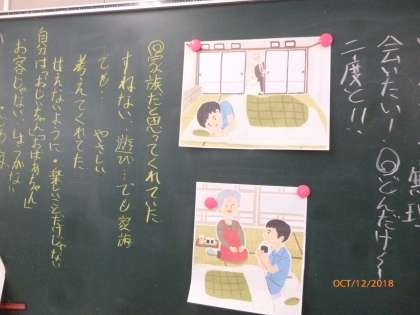 無理
会いたいー！◎どんだけ〜
二度と!!
◎家族だと思ってくれていた
すねない、遊び…でも家族
でも… やさしい
考えてくれてた
甘えないように・楽しいことだけじゃない
自分は「おじいちゃん」「おばあちゃん」
お客じゃない しょうがない
OCT/12/2018